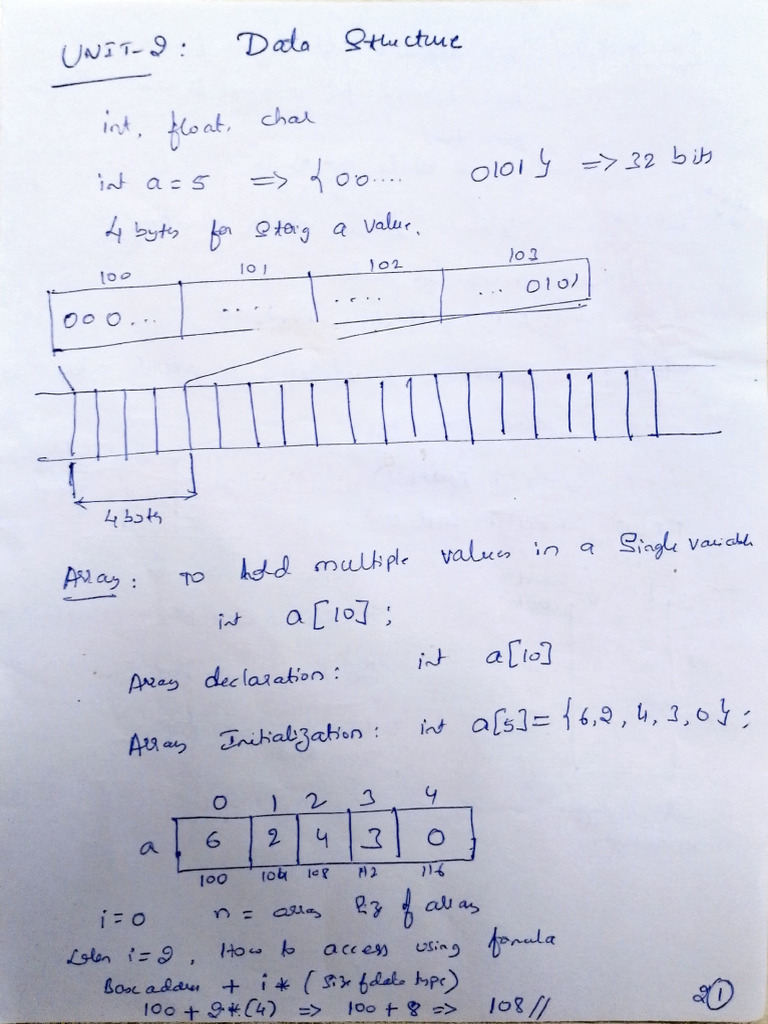 UNIT-2: Data Structure
int, float, char
int a = 5 => {00.... 0101} => 32 bits
4 bytes for storig a value.
100 101 102 103
000... .... .... ... 0101
4 byts
Array: To hold multiple values in a Single variable
int a[10];
Array declaration: int a[10]
Array Initialization: int a[5] = {6,2,4,3,0};
0 1 2 3 4
a 6 2 4 3 0
100 104 108 112 116
i=0 n = array siz of array
when i=2, How to access using formula
Base address + i* (size of data type)
100 + 2*(4) => 100+8 => 108//
2 1